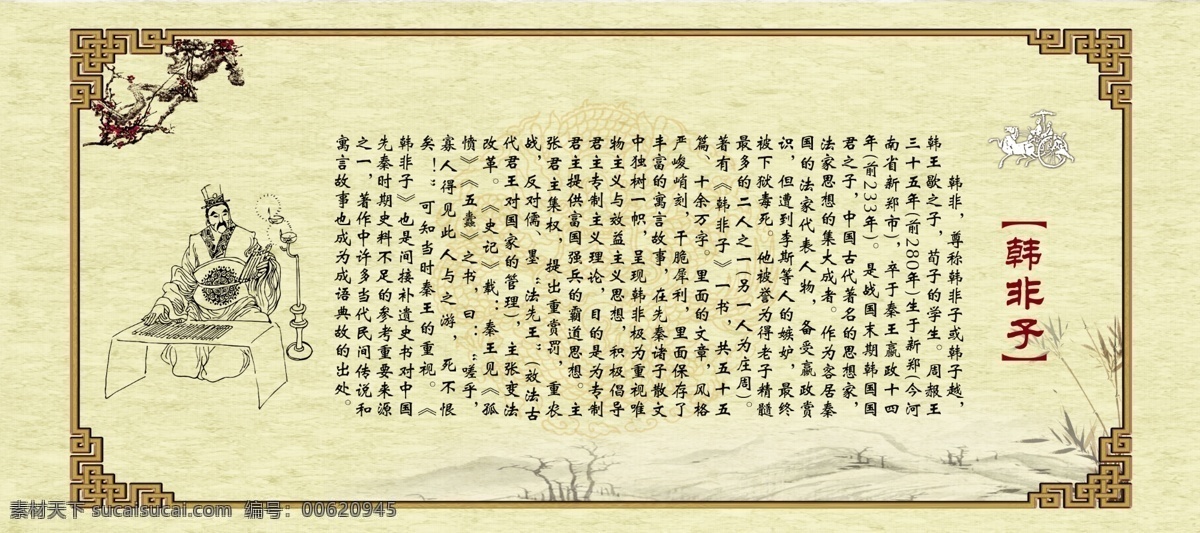 【韩非子】
韩非，尊称韩非子或韩子越，
韩王歇之子，荀子的学生。周赧王
三十五年(前280年)生于新郑(今河
南省新郑市)，卒于秦王嬴政十四
年(前233年)。是战国末期韩国国
君之子，中国古代著名的思想家，
法家思想的集大成者。作为客居秦
国的法家代表人物，备受嬴政赏
识，但遭到李斯等人的嫉妒，最终
被下狱毒死。他被誉为得老子精髓
最多的二人之一(另一人为庄周)。
著有《韩非子》一书，共五十五
篇、十余万字。里面的文章，风格
严峻峭刻，干脆犀利，里面保存了
丰富的寓言故事，在先秦诸子散文
中独树一帜，呈现韩非极为重视唯
物主义与效益主义思想，积极倡导
君主专制主义理论，目的是为专制
君主提供富国强兵的霸道思想。主
张君主集权，提出重赏罚，重农
战，反对儒、墨“法先王”(效法古
代君王对国家的管理)，主张变法
改革。《史记》载：秦王见《孤
愤》《五蠹》之书，曰：“嗟乎，
寡人得见此人与之游，死不恨
矣！”可知当时秦王的重视。《
韩非子》也是间接补遗史书对中国
先秦时期史料不足的参考重要来源
之一，著作中许多当代民间传说和
寓言故事也成为成语典故的出处。
素材天下 sucaisucai.com 编号：00620945